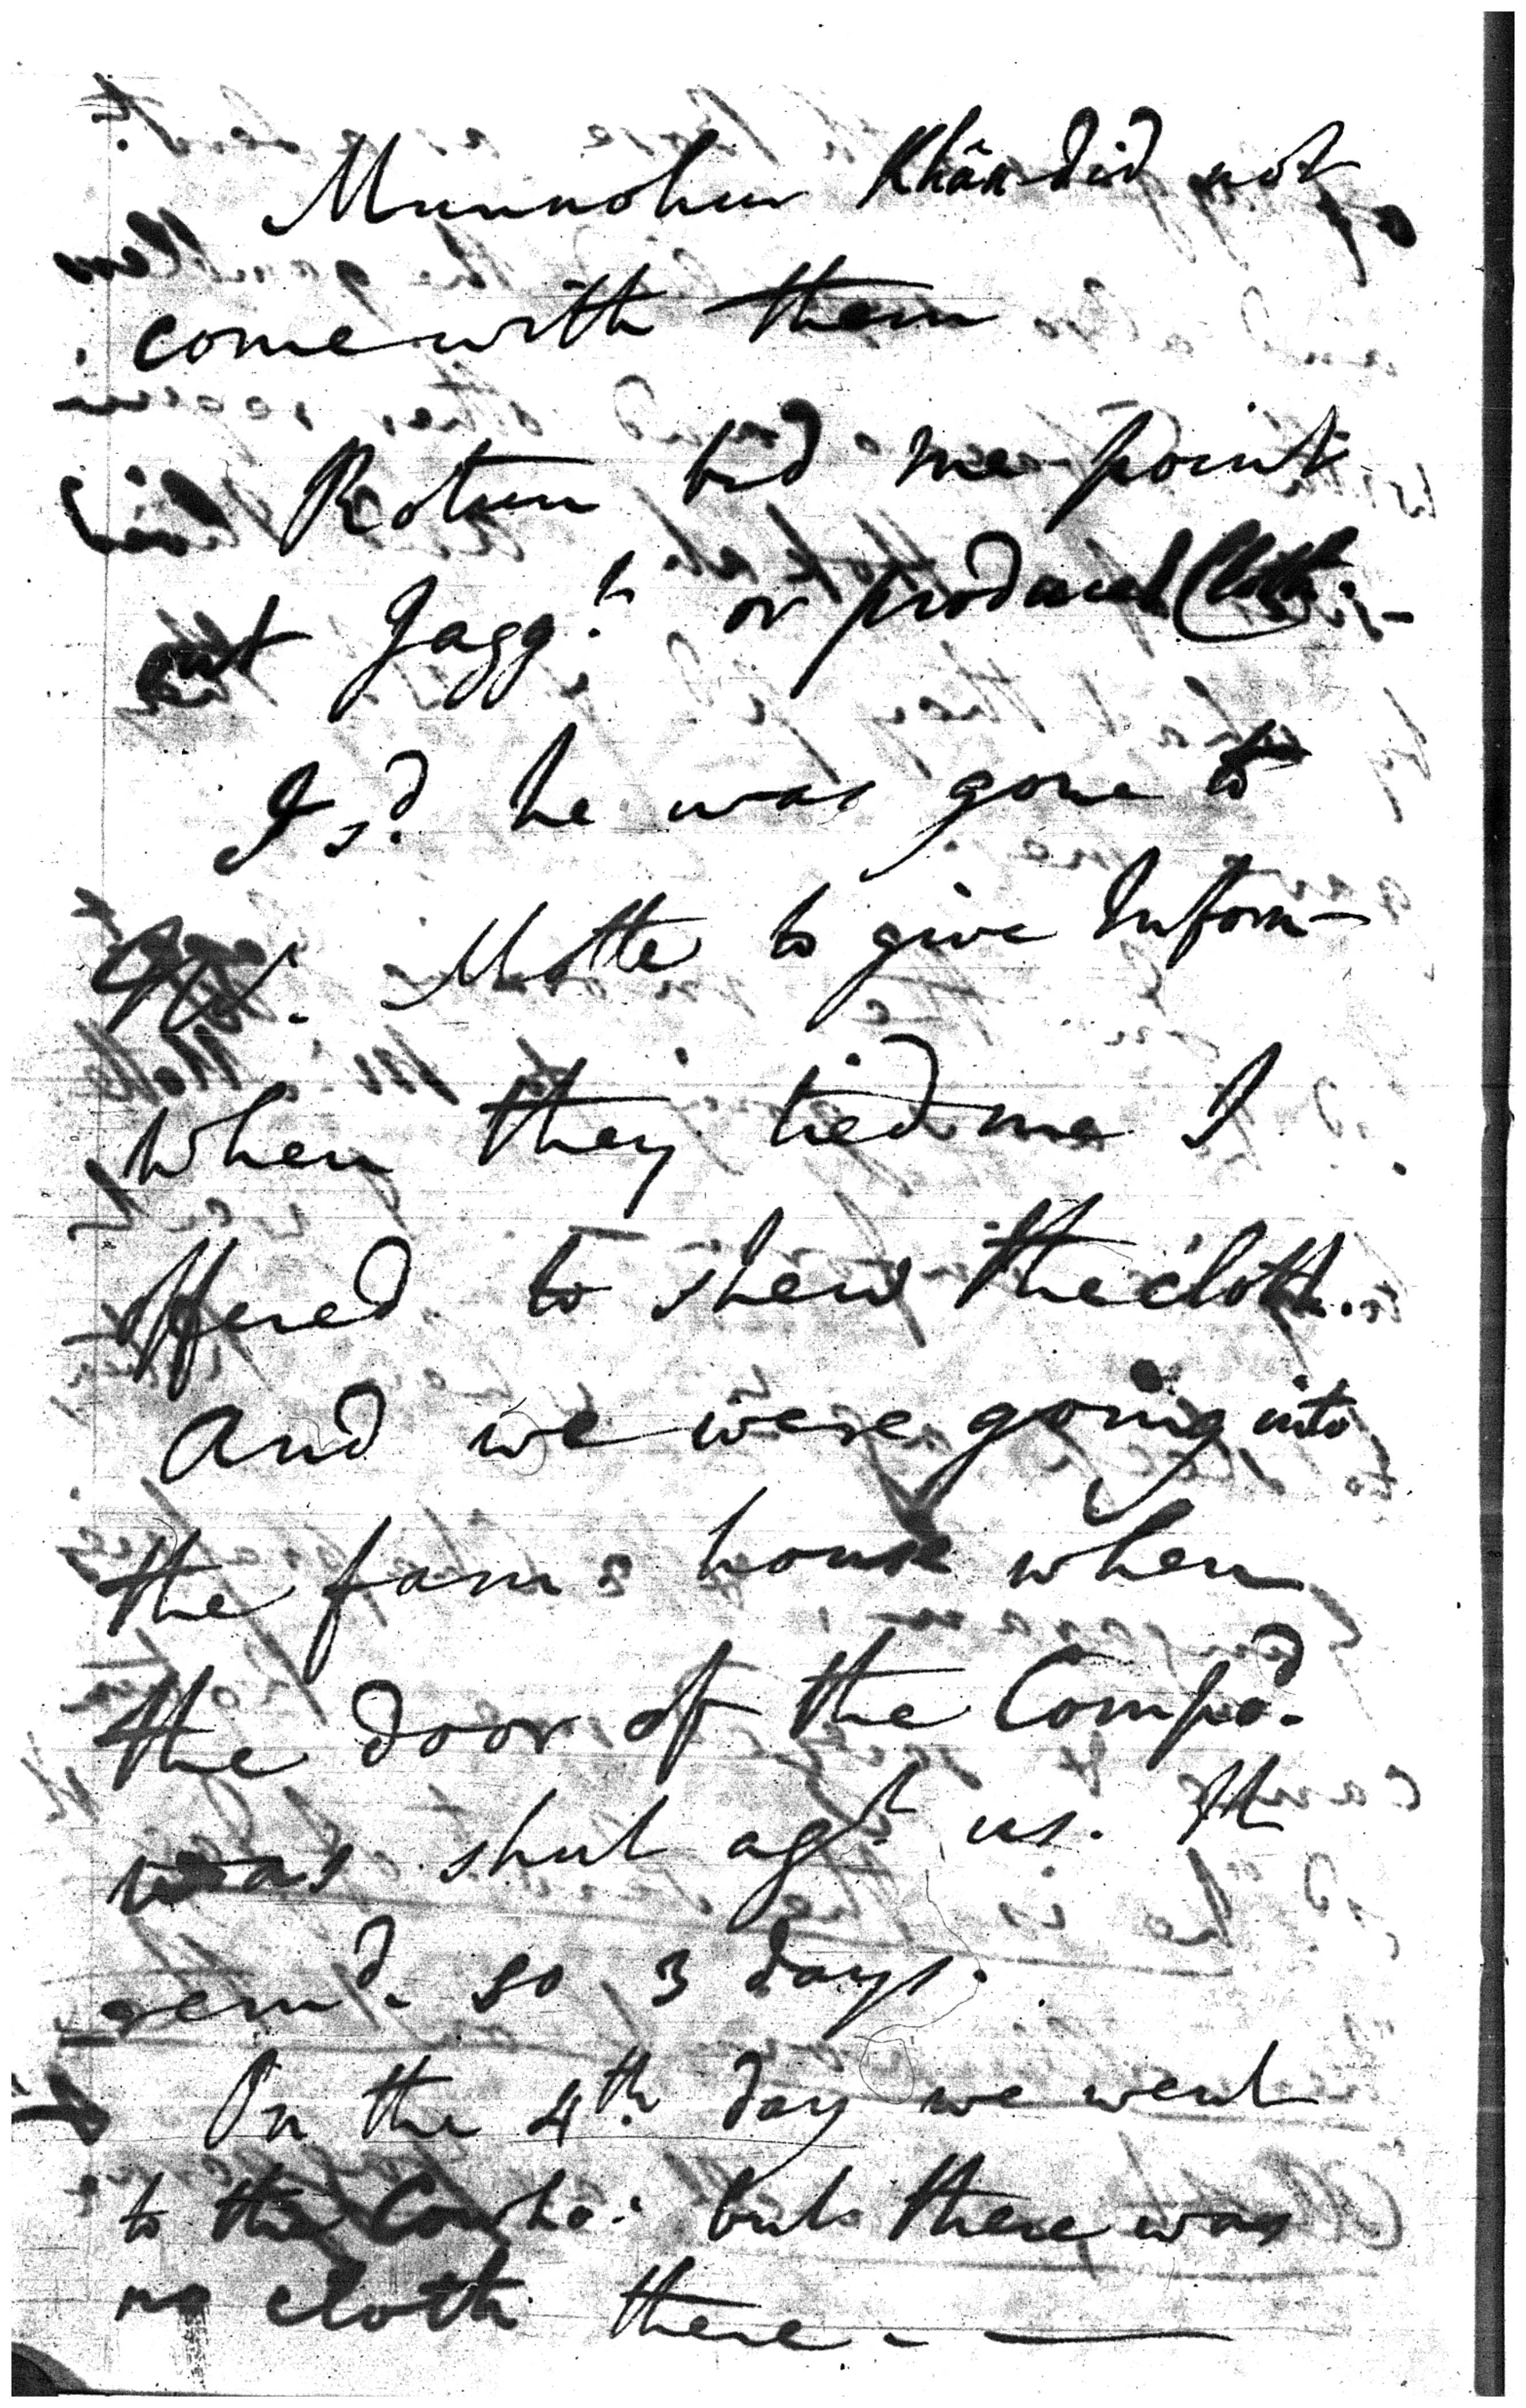 Munnohur Khân did not
come with them
Rotun bid me point
out Jagg.h or produced Cloth.
I s.d he was gone to
Motte to give Inform-
when they tied me I
offered to shew the cloth.
And we were going into
the fam: house when
the door of the Compd.
was shut ag.t us. It
rem.d so 3 days.
On the 4th day we went
to the Cowho: but there was
no cloth there -